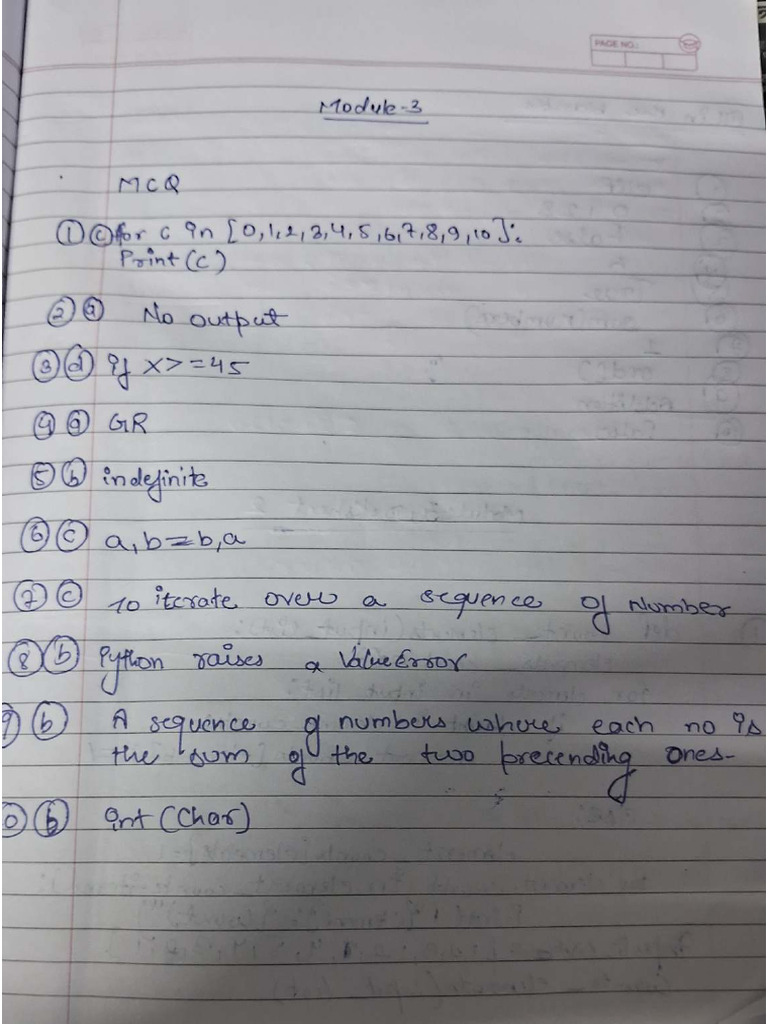 PAGE NO.:
Module-3
MCQ
① ⓒ for c in [0,1,2,3,4,5,6,7,8,9,10]:
Print(c)
② ⓐ No output
③ ⓓ if x>=45
④ ⓐ GR
⑤ ⓑ indefinite
⑥ ⓒ a,b=b,a
⑦ ⓒ To iterate over a sequence of Number
⑧ ⓑ Python raises a ValueError
9 ⓑ A sequence of numbers where each no is
the sum of the two precending ones-
0 ⓑ int (Char)